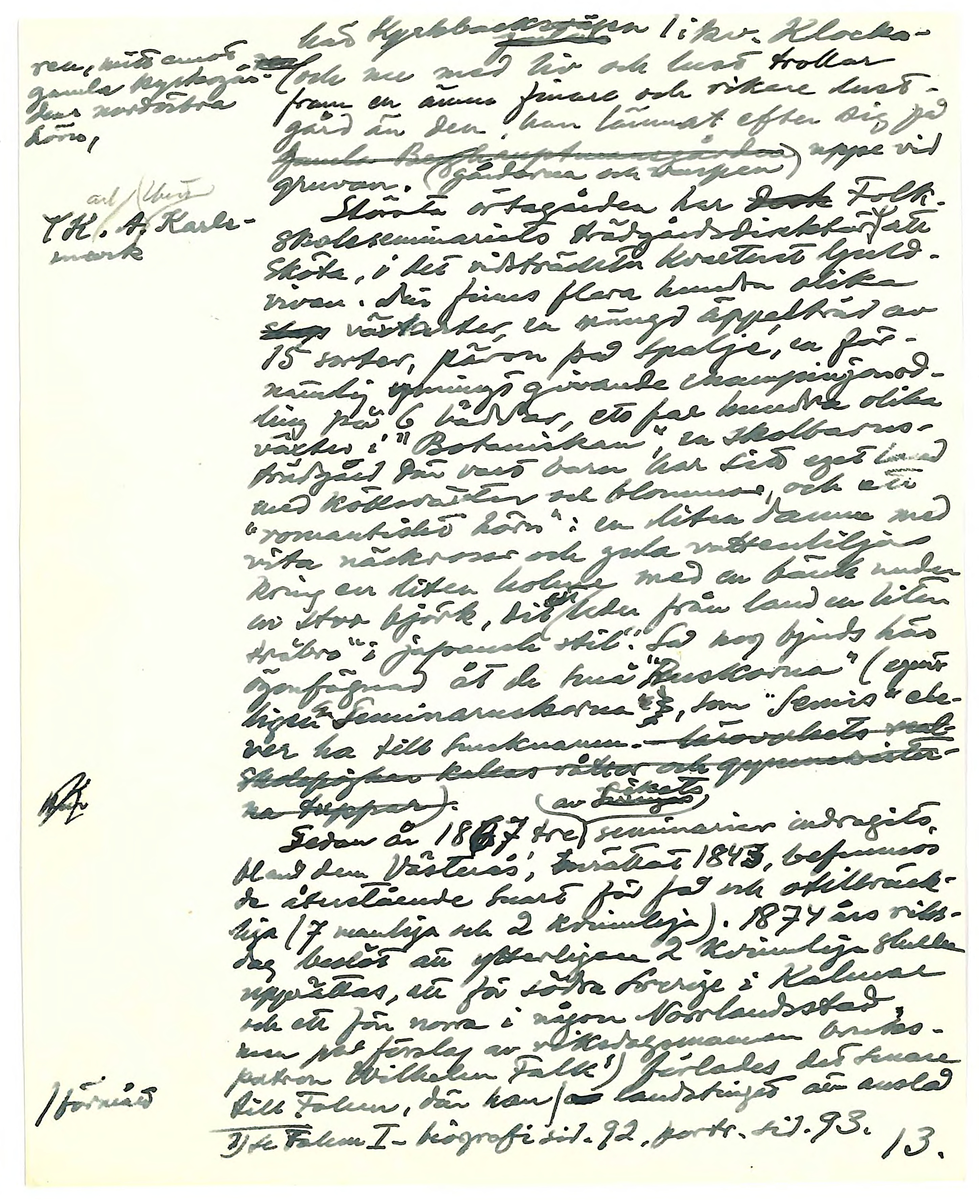 had Kyrkbacksvägen 1 i kv. Klocka-
ren, mitt emot
gamla kyrkogår-
dens nordöstra
hörn,
(och nu med liv och lust trollar
fram en ännu finare och rikare lust-
gård än den, han lämnat efter sig på
gamla Berghauptmansgården) uppe vid
gruvan. (gårdarna och
Största örtagården har dock Folk-
skoleseminariets trädgårdsdirektör att
K. A. Karls-
mark
sköta, i det vidsträckta kvarteret Guld-
vivan. Där finns flera hundra olika
växtarter, en mängd äppelträd av
15 sorter, päron på spalje, en för-
nämlig givande champinjonod-
ling på 6 bäddar, ett par hundra olika
växter i "Botaniskan", en skolbarns-
trädgård där vart barn har sitt eget land
med köksväxter och blommor, och ett
"romantiskt hörn": en liten damm med
vita näckrosor och gula vattenliljor
kring en liten holme med en bänk under
en stor björk, dit leder från land en liten
träbro "i japansk stil". Så nog bjuds här
ögonfägnad åt de små "Ruskorna" (egent-
ligen "Seminaruskorna"), som "Semis" ele-
ver ha till smeknamn. läroverkets real-
skolepojkar kallas råttor och gymnasister-
na tuppar).
(av rikets)
Sedan år 1867 tre seminarier indragits,
bland dem Västerås, inrättat 1843, befunnos
de återstående snart för få och otillräck-
liga (7 manliga och 2 kvinnliga). 1874 års riks-
dag beslöt att ytterligare 2 kvinnliga skulle
upprättas, ett för södra Sverige i Kalmar
och ett för norra i någon Norrlandsstad,
men på förslag av riksdagsmannen bruks-
patron Wilhelm Falk¹) förlades det senare
till Falun, där han landstinget att anslå
förmått
1) se Falun I - biografi sid. 92, portr. sid. 93.
13.